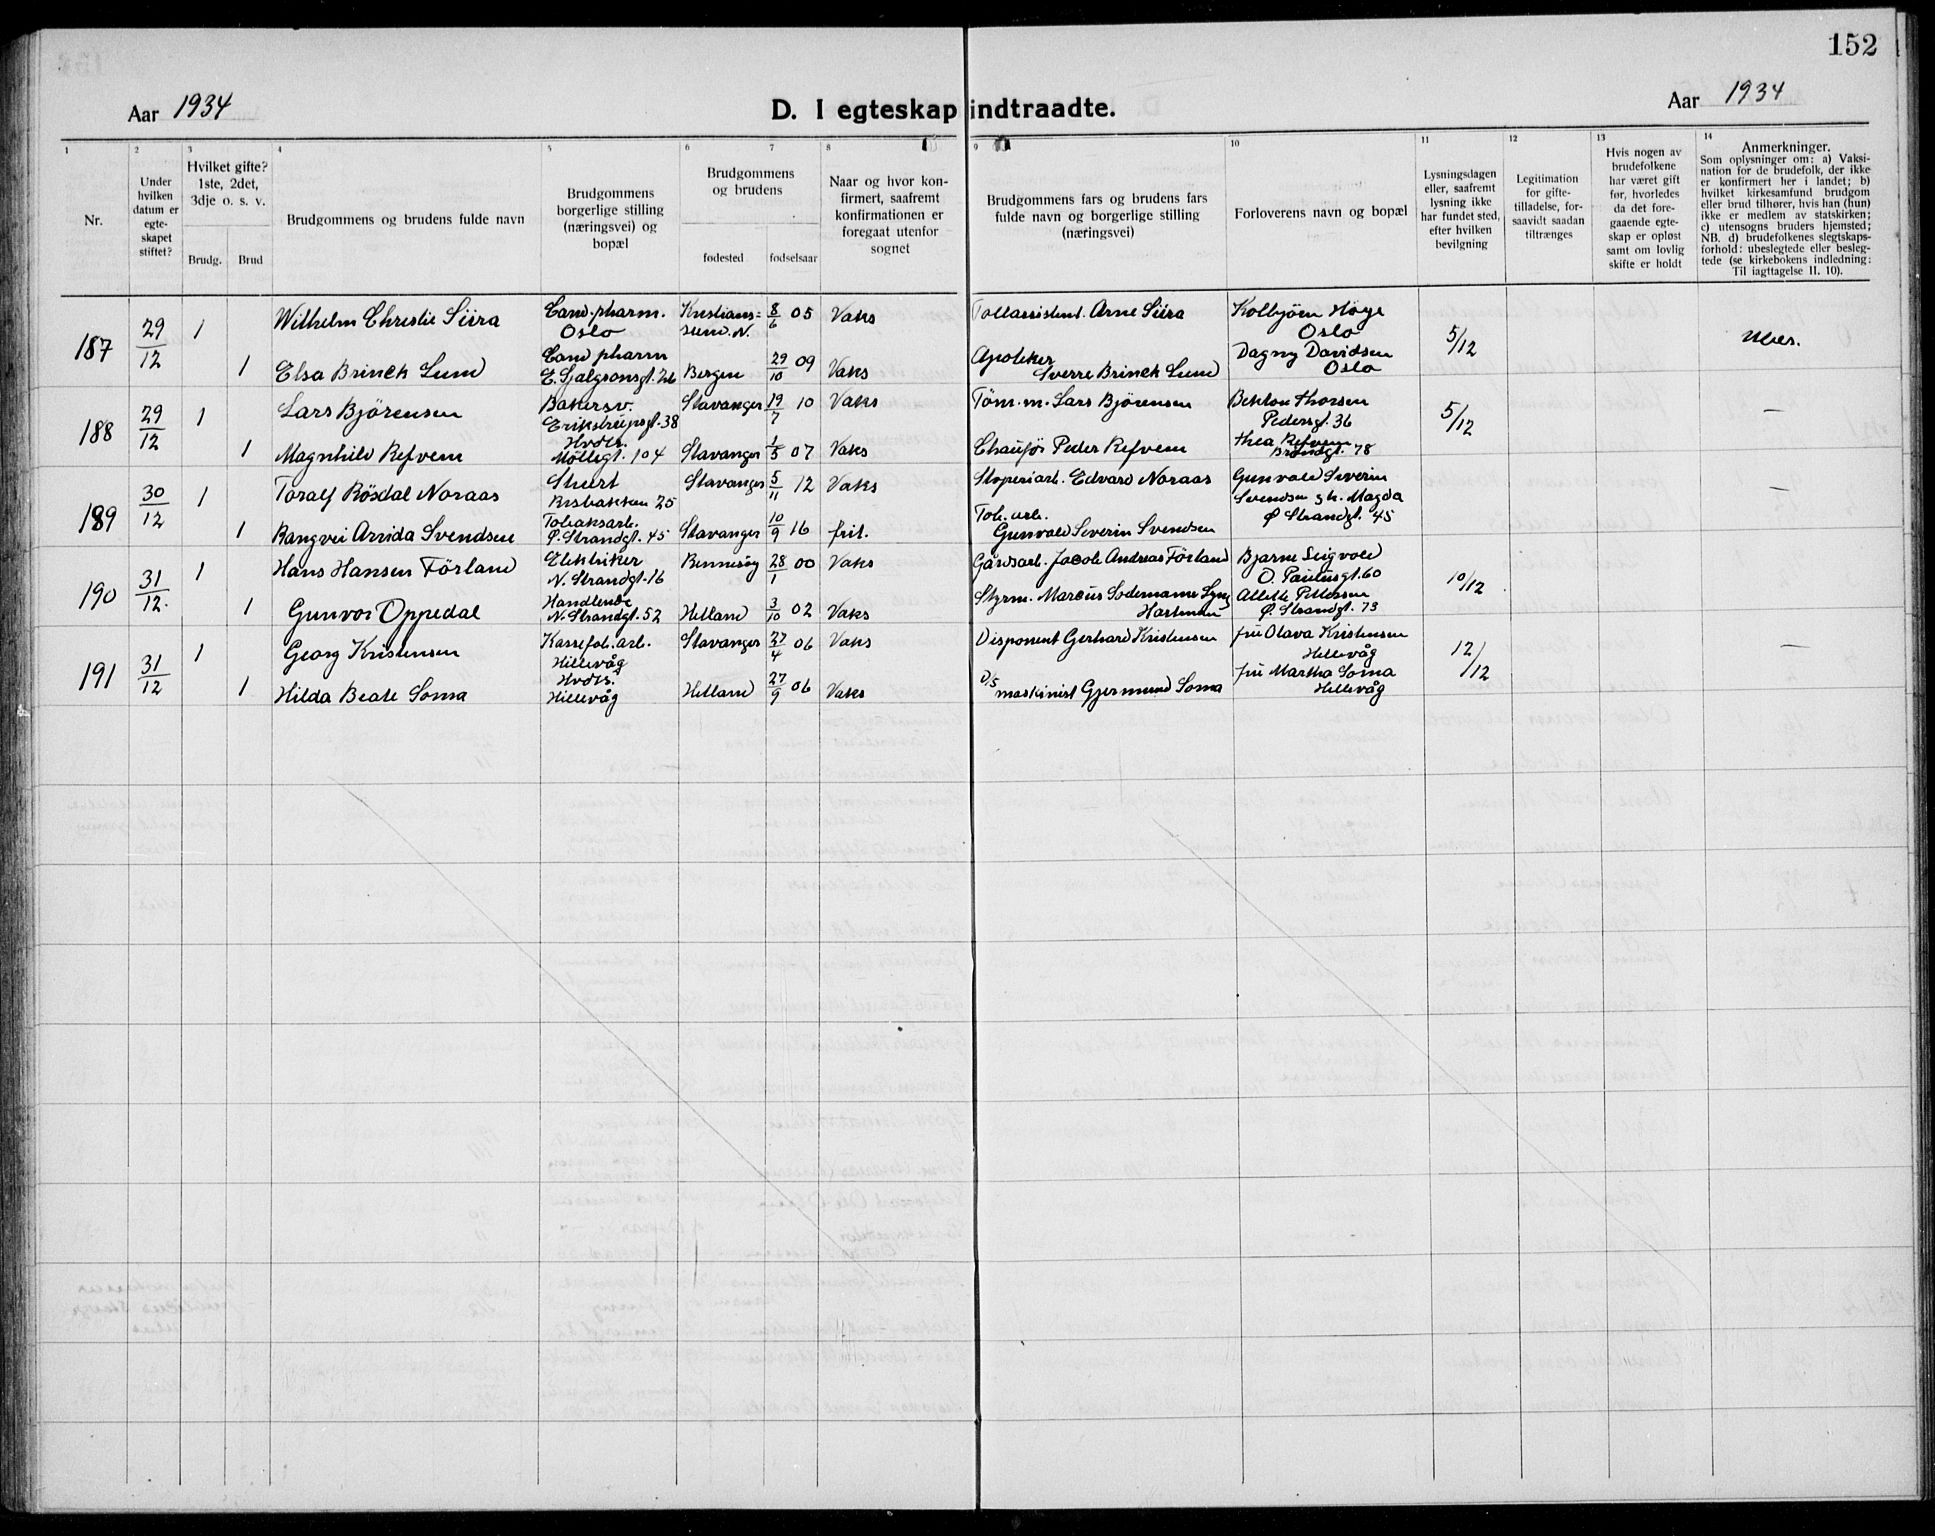 152
Aar 1934
D. I egteskap indtraadte.
Aar 1934
1 2 3 4 5 6 7 8 9 10 11 12 13 14
Nr.
Under hvilken datum er egte-skapet stiftet?
Hvilket gifte? 1ste, 2det, 3dje o. s. v.
Brudg. Brud
Brudgommens og brudens fulde navn
Brudgommens borgerlige stilling (næringsvei) og bopæl
Brudgommens og brudens
fødested fødselsaar
Naar og hvor kon-firmert, saafremt konfirmationen er foregaat utenfor sognet
Brudgommens fars og brudens fars fulde navn og borgerlige stilling (næringsvei)
Forloverens navn og bopæl
Lysningsdagen eller, saafremt lysning ikke har fundet sted, efter hvilken bevilgning
Legitimation for gifte-tilladelse, for-saavidt saadan tiltrænges
Hvis nogen av brudefolkene har været gift før, hvorledes da det fore-gaaende egte-skap er opløst samt om lovlig skifte er holdt
Anmerkninger.
Som oplysninger om: a) Vaksi-nation for de brudefolk, der ikke er konfirmert her i landet; b) hvilket kirkesamfund brudgom eller brud tilhører, hvis han (hun) ikke er medlem av statskirken; c) utensogns bruders hjemsted; NB. d) brudefolkenes slegtskaps-forhold: ubeslegtede eller besleg-tede (se kirkebokens indledning: Til iagttagelse II. 10).
187 29/12 1 Wilhelm Christie Siira Cand. pharm. Oslo Kristians=sund. N. 8/6 05 Vaks Tollassistent. Arne Siira Kolbjörn Höye Oslo 5/12
1 Elsa Brinck Lund Cand pharm Bergen 29/10 09 Vaks Apoteker Sverre Brinck Lund Dagny Davidsen Oslo
188 29/12 1 Lars Bjørensen Bakersv. Erikstrupsgt. 38 Stavanger 19/7 10 Vaks Töm. m. Lars Bjørensen Thorsen Pedersgt. 36 5/12 —
1 Magnhild Refvem Hvdtr. Möllegt. 104 Stavanger 1/5 07 Vaks Chauför Peder Refvem Thea Refvem 78
189 30/12 1 Toralf Rösdal Noraas Stuert 25 Stavanger 5/11 12 Vaks Stoperiarb. Edvard Noraas Gunvald Severin Svendsen og h. Magda Ø Strandgt. 45 —
1 Rangvei Arvida Svendsen Tobaksarb. Ø. Strandgt. 45 Stavanger 10/9 16 frit. Tob. arb. Gunvald Severin Svendsen
190 31/12. 1 Hans Hansen Förland Elektriker N. Strandgt. 16 Rennisöy 28/1 00 Vaks Gårdsarb. Jacob Andreas Förland Bjarne Seigvold O. Paulusgt. 60 10/12
1 Gunvor Oppedal Handlende N. Strandgt. 52 Hetland 3/10 02 Vaks Styrm. Marcus Hartman Pettersen Ø. Strandgt. 73
191 31/12 1 Georg Kristensen Kassefab. arb. Hillevåg Stavanger 27/4 06 Vaks Disponent Gerhard Kristensen fru Olava Kristensen Hillevåg 12/12 —
1 Hilda Beate Soma Hvdtr. Hillevåg Hetland 27/9 06 Vaks D/S maskinist Gjermund Soma fru Martha Soma Hillevåg